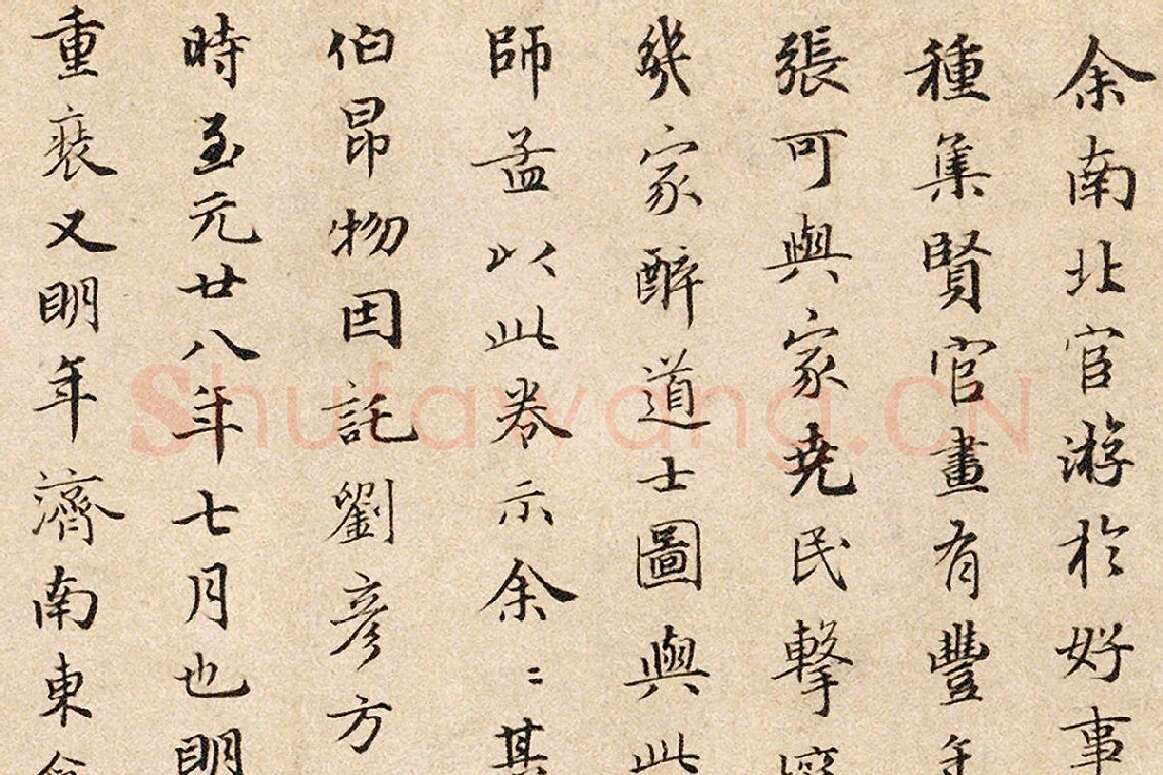 余南北官游於好事
種集賢官畫有豐年
張可與家堯民擊
幾家醉道士圖與此
師孟以此卷示余〻其
伯昂物因託劉彥方
時至元廿八年七月也明
重裝又明年濟南東
Shufawang.CN